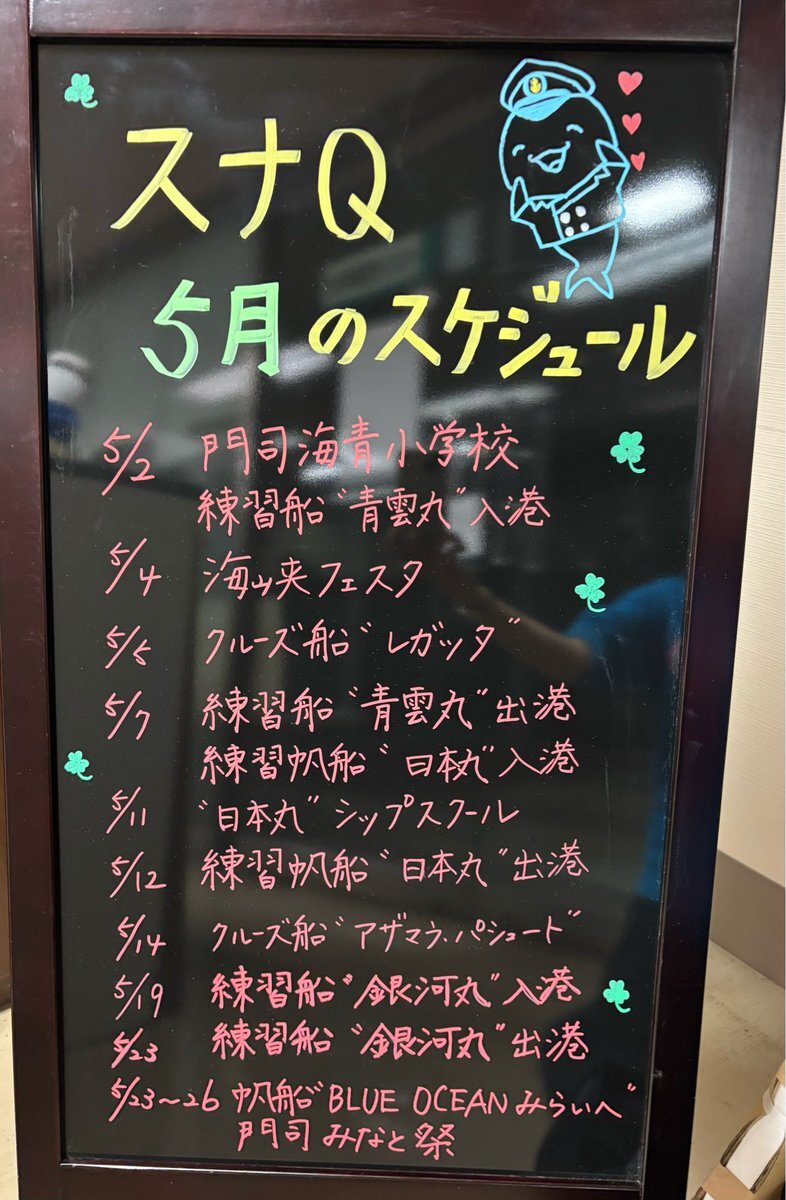 スナQ
5月のスケジュール
5/2 門司海青小学校
練習船“青雲丸”入港
5/4 海峡フェスタ
5/5 クルーズ船“レガッタ”
5/7 練習船“青雲丸”出港
練習帆船“日本丸”入港
5/11 “日本丸”シップスクール
5/12 練習帆船“日本丸”出港
5/14 クルーズ船“アザマラ・パシュート”
5/19 練習船“銀河丸”入港
5/23 練習船“銀河丸”出港
5/23〜26 帆船“BLUE OCEANみらいへ”
門司みなと祭